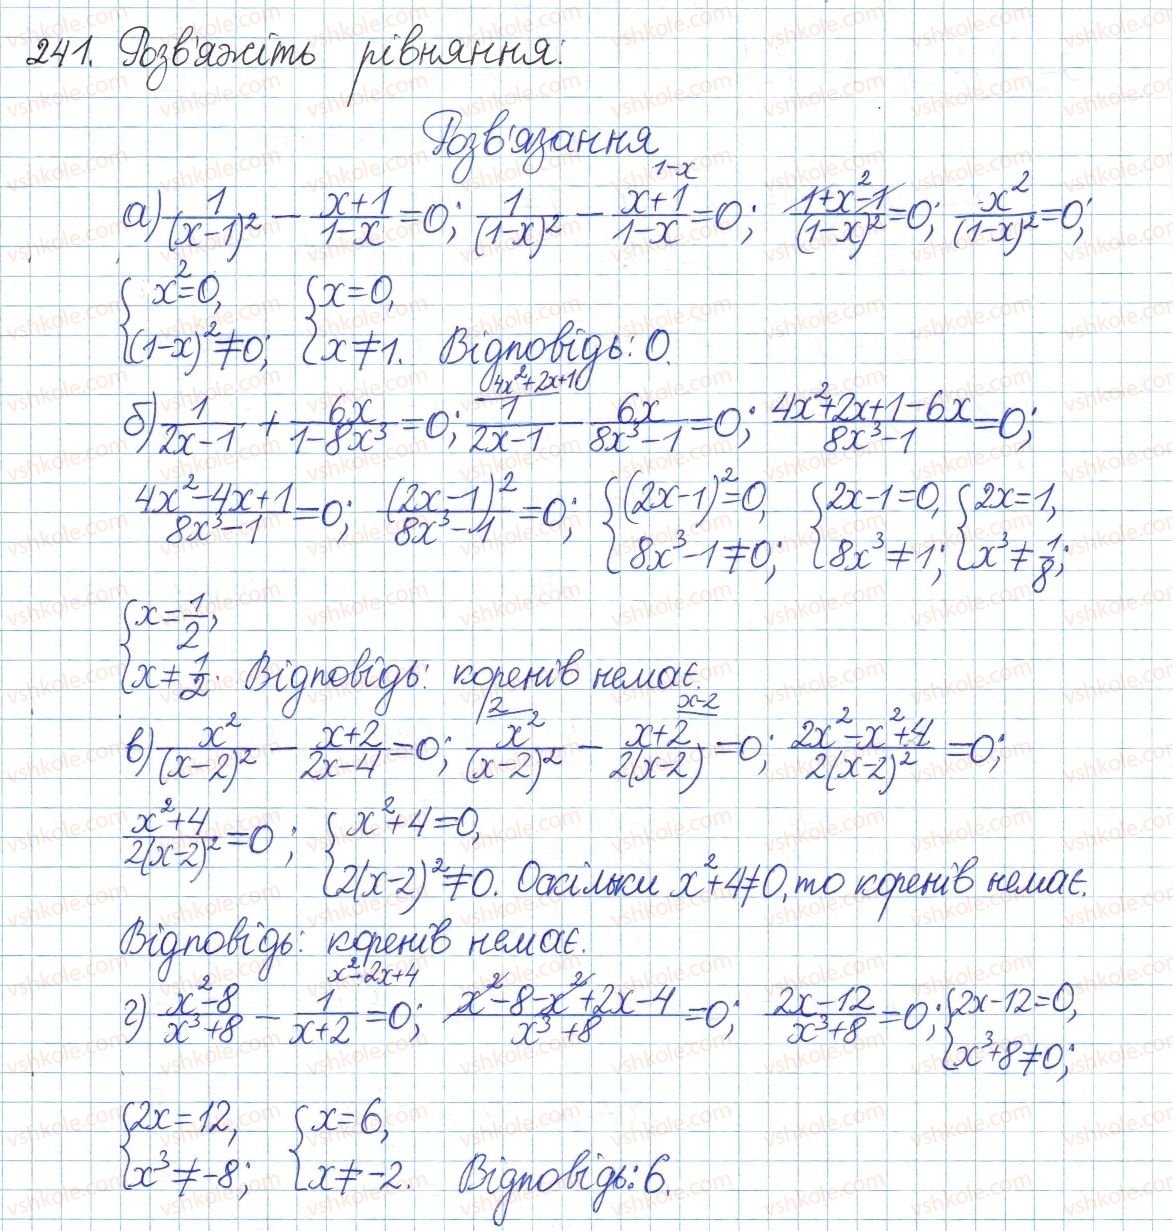 241. Розв'яжіть рівняння:
Розв'язання
а) 1/(x-1)² - (x+1)/(1-x) = 0; 1/(1-x)² - (x+1)/(1-x) [1-x] = 0; (1+x²-1)/(1-x)² = 0; x²/(1-x)² = 0;
{x²=0, (1-x)²≠0; {x=0, x≠1. Відповідь: 0.
б) 1/(2x-1) + 6x/(1-8x³) = 0; 1/(2x-1) [4x²+2x+1] - 6x/(8x³-1) = 0; (4x²+2x+1-6x)/(8x³-1) = 0;
(4x²-4x+1)/(8x³-1) = 0; (2x-1)²/(8x³-1) = 0; {(2x-1)²=0, 8x³-1≠0; {2x-1=0, 8x³≠1; {2x=1, x³≠1/8;
{x=1/2, x≠1/2. Відповідь: коренів немає.
в) x²/(x-2)² - (x+2)/(2x-4) = 0; x²/(x-2)² [2] - (x+2)/(2(x-2)) [x-2] = 0; (2x²-x²+4)/(2(x-2)²) = 0;
(x²+4)/(2(x-2)²) = 0; {x²+4=0, 2(x-2)²≠0. Оскільки x²+4≠0, то коренів немає.
Відповідь: коренів немає.
г) (x²-8)/(x³+8) - 1/(x+2) [x²-2x+4] = 0; (x²-8-x²+2x-4)/(x³+8) = 0; (2x-12)/(x³+8) = 0; {2x-12=0, x³+8≠0;
{2x=12, x³≠-8; {x=6, x≠-2. Відповідь: 6.